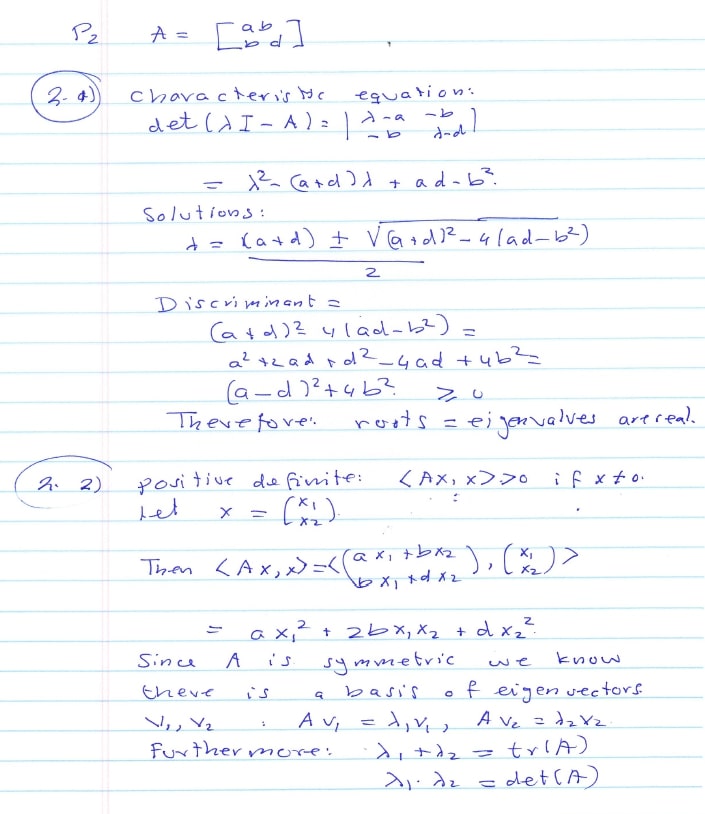 P2 A = [a b
b d]
2. 1) Characteristic equation:
det (λI - A) = | λ-a -b
-b λ-d |
= λ² - (a+d)λ + ad - b².
Solutions:
λ = (a+d) ± √(a+d)² - 4(ad-b²)
2
Discriminant =
(a+d)² 4(ad-b²) =
a² + 2ad + d² - 4ad + 4b² =
(a-d)² + 4b². ≥ 0
Therefore: roots = eigenvalves are real.
2. 2) positive definite: <Ax, x> >0 if x≠0.
Let x = (x1
x2).
Then <Ax, x> = <(ax1 + bx2
bx1 + dx2), (x1
x2)>
= ax1² + 2bx1x2 + dx2².
Since A is symmetric we know
there is a basis of eigenvectors
V1, V2 : AV1 = λ1V1, AV2 = λ2V2.
Furthermore: λ1 + λ2 = tr(A)
λ1 · λ2 = det(A)